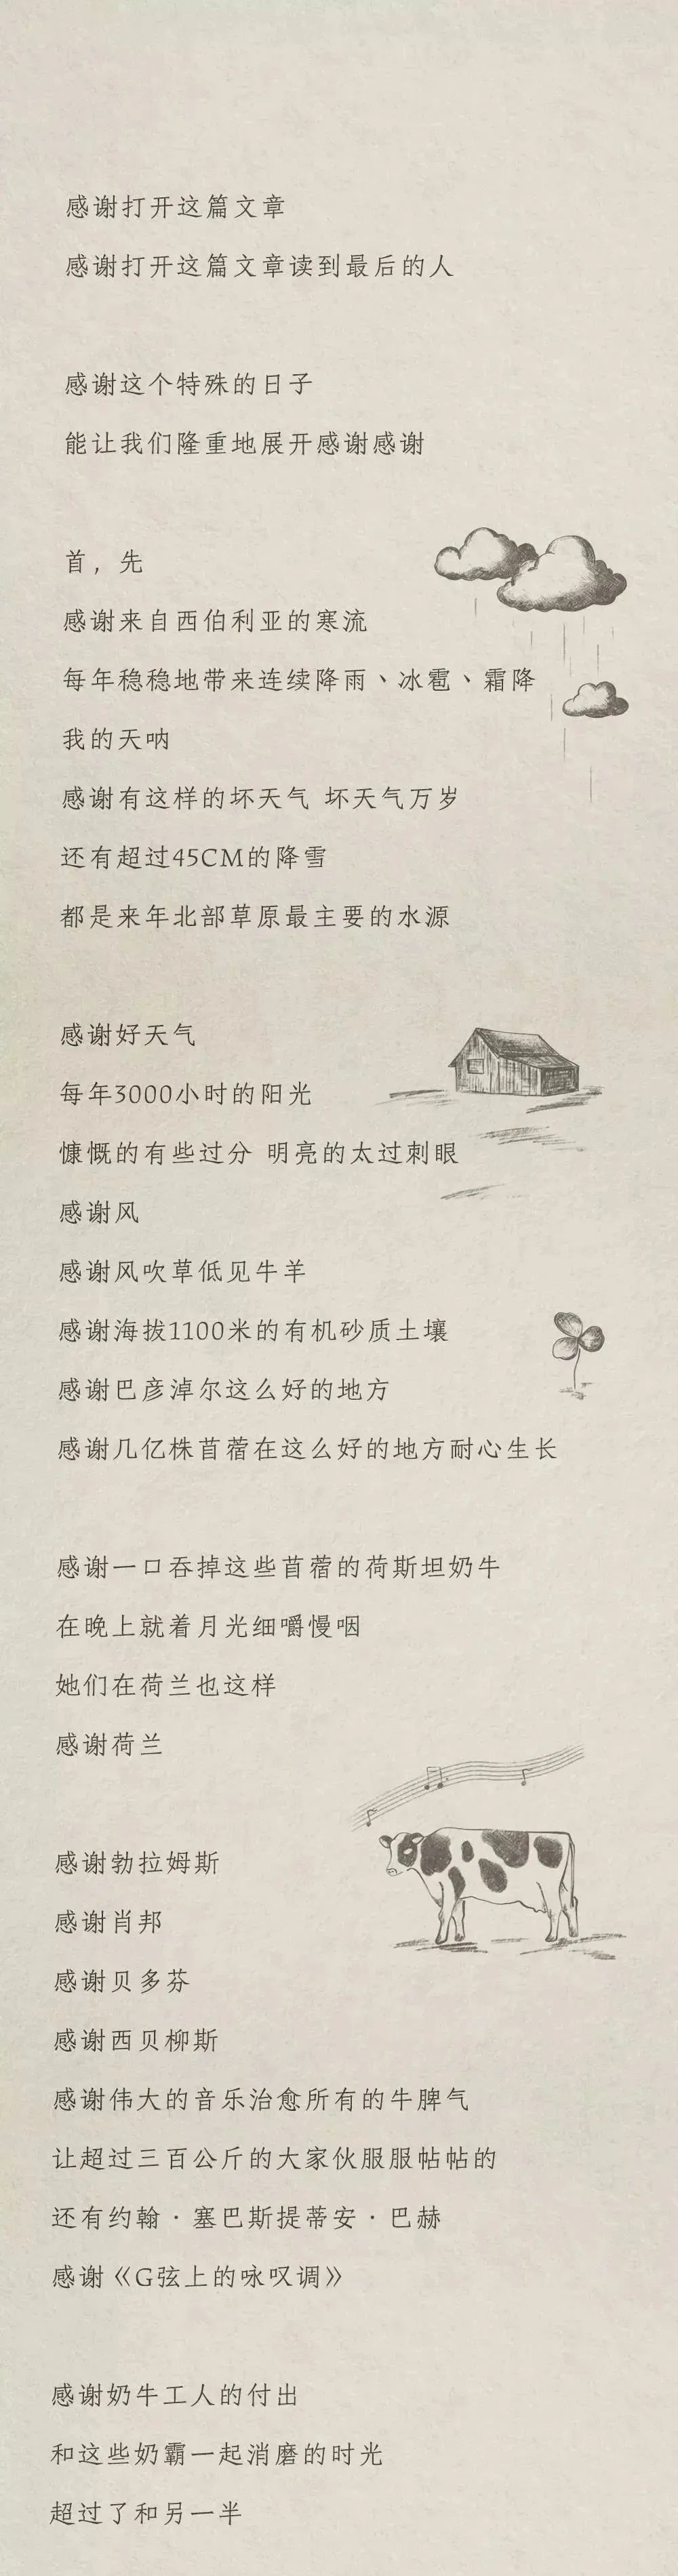 感谢打开这篇文章
感谢打开这篇文章读到最后的人
感谢这个特殊的日子
能让我们隆重地展开感谢感谢
首，先
感谢来自西伯利亚的寒流
每年稳稳地带来连续降雨、冰雹、霜降
我的天呐
感谢有这样的坏天气 坏天气万岁
还有超过45CM的降雪
都是来年北部草原最主要的水源
感谢好天气
每年3000小时的阳光
慷慨的有些过分 明亮的太过刺眼
感谢风
感谢风吹草低见牛羊
感谢海拔1100米的有机砂质土壤
感谢巴彦淖尔这么好的地方
感谢几亿株苜蓿在这么好的地方耐心生长
感谢一口吞掉这些苜蓿的荷斯坦奶牛
在晚上就着月光细嚼慢咽
她们在荷兰也这样
感谢荷兰
感谢勃拉姆斯
感谢肖邦
感谢贝多芬
感谢西贝柳斯
感谢伟大的音乐治愈所有的牛脾气
让超过三百公斤的大家伙服服帖帖的
还有约翰·塞巴斯提蒂安·巴赫
感谢《G弦上的咏叹调》
感谢奶牛工人的付出
和这些奶霸一起消磨的时光
超过了和另一半